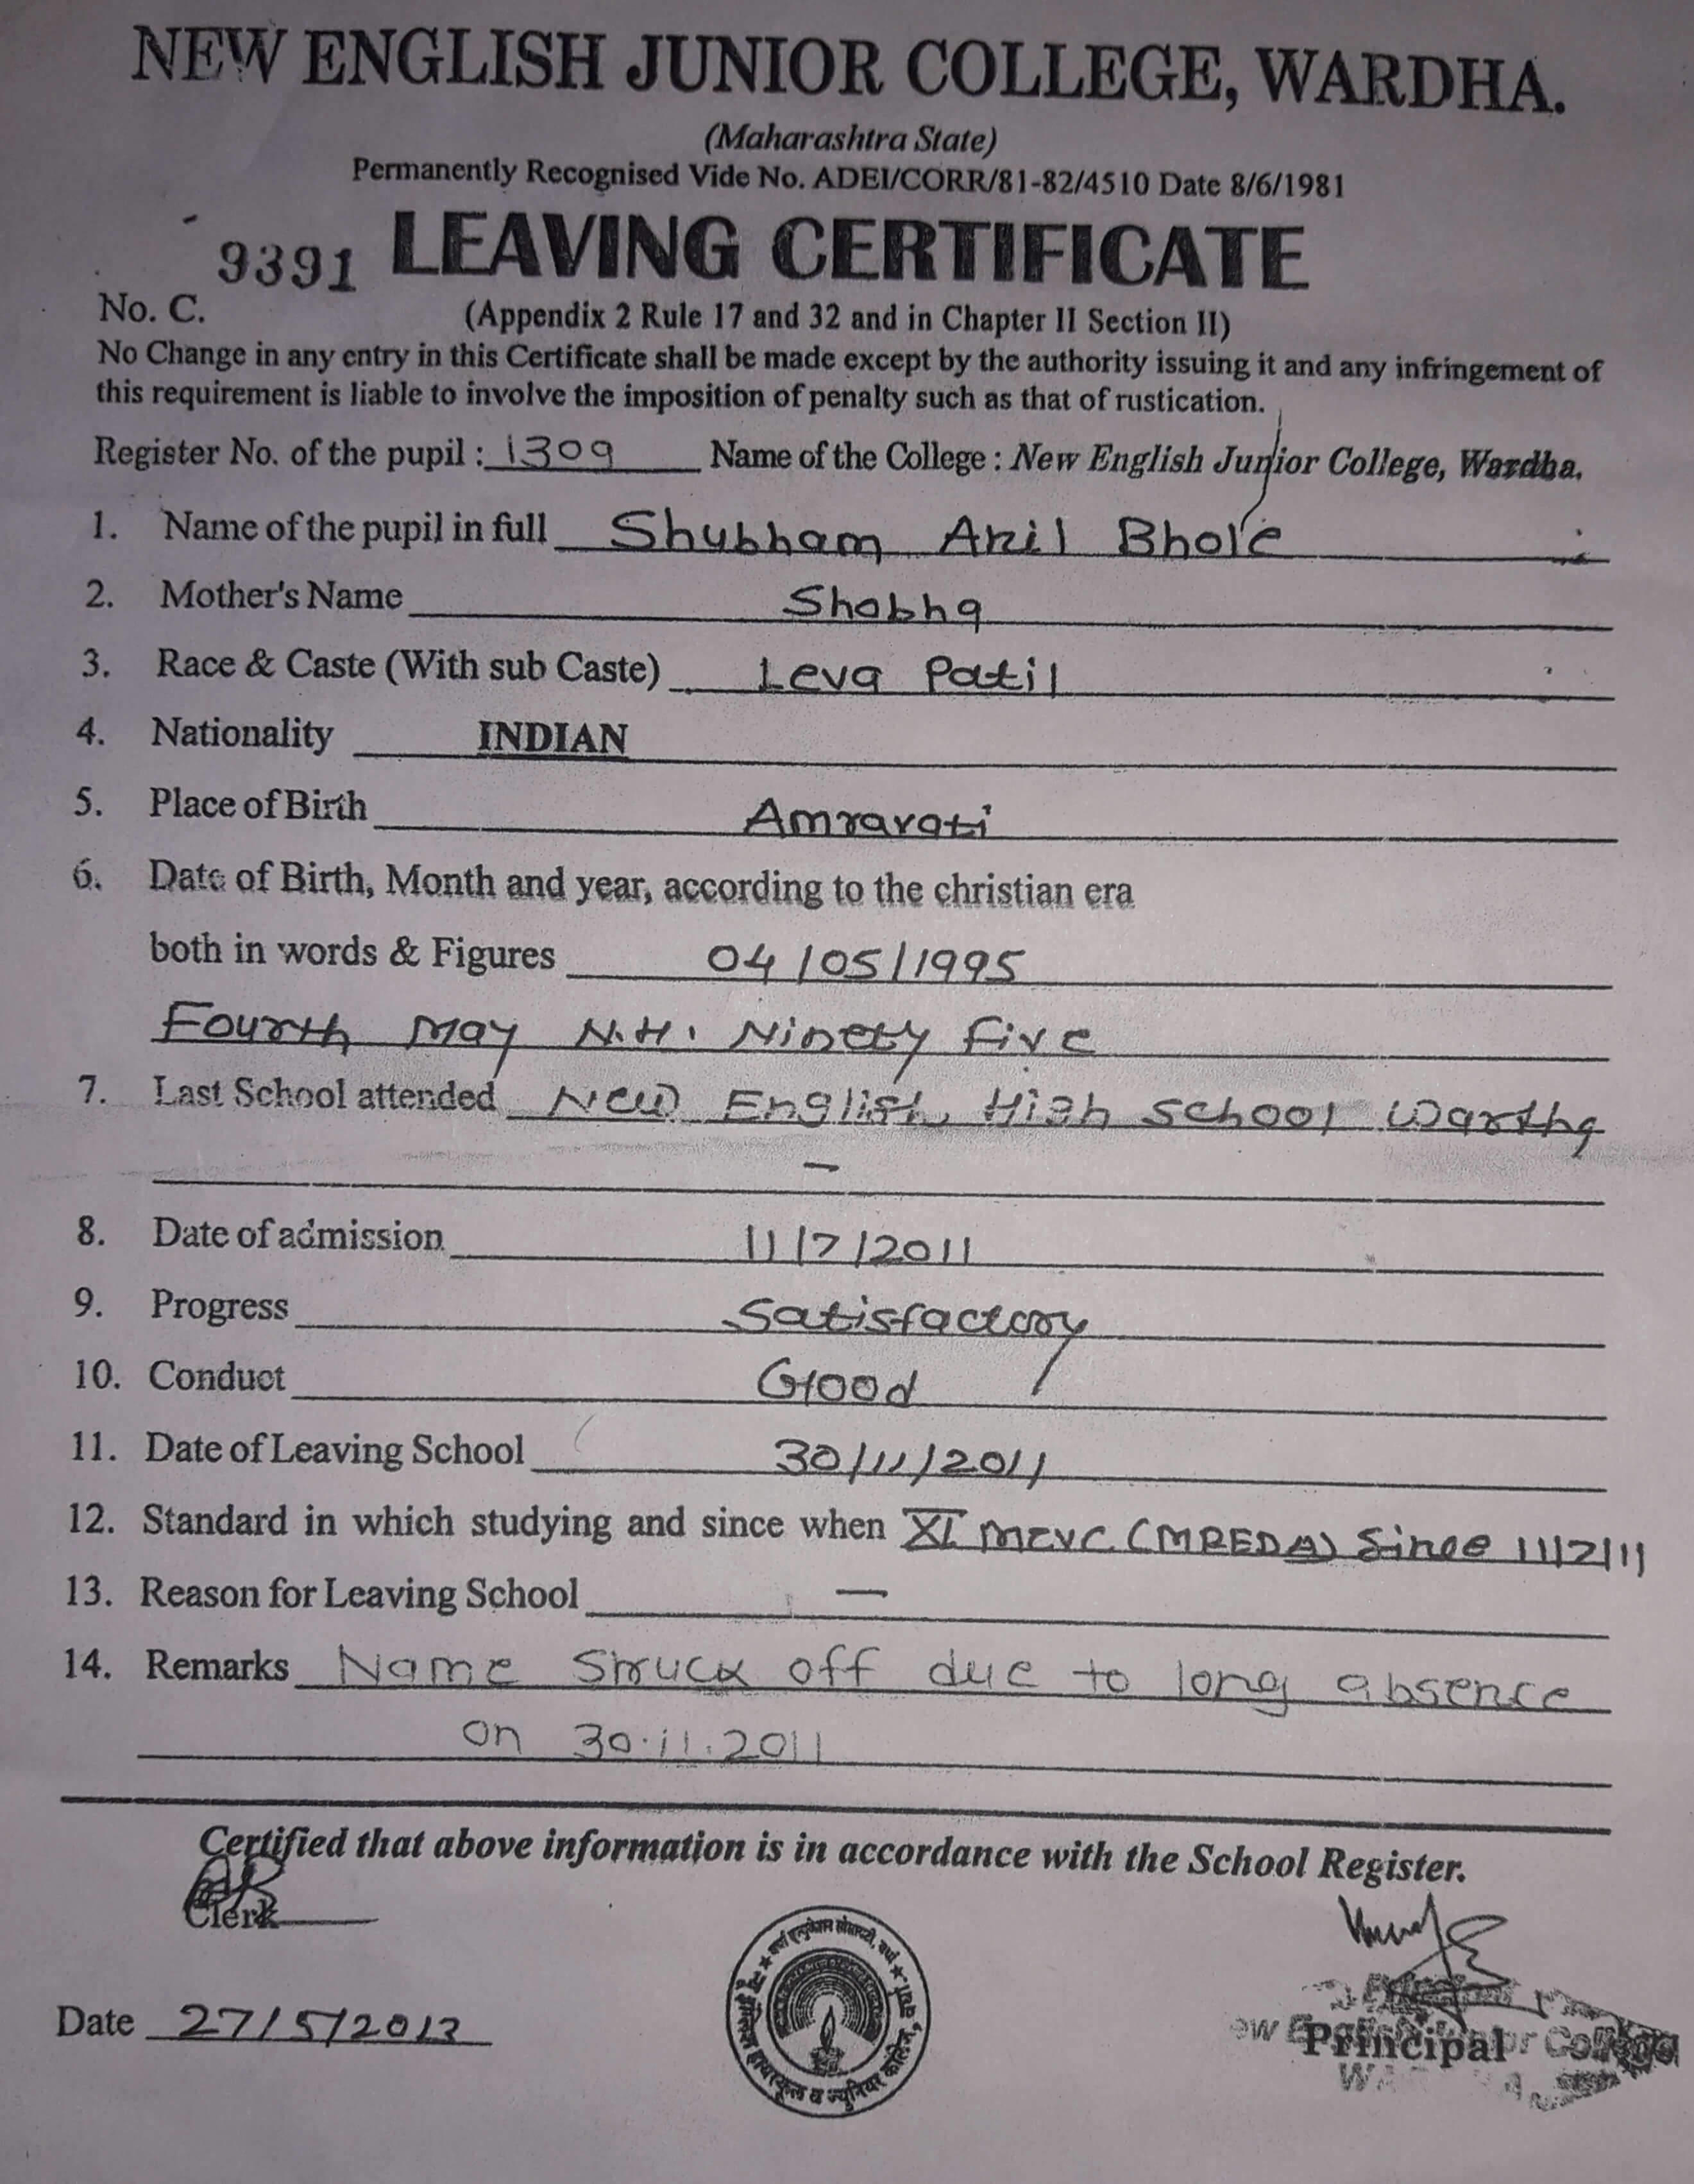 NEW ENGLISH JUNIOR COLLEGE, WARDHA.
(Maharashtra State)
Permanently Recognised Vide No. ADEI/CORR/81-82/4510 Date 8/6/1981
9391 LEAVING CERTIFICATE
No. C. (Appendix 2 Rule 17 and 32 and in Chapter II Section II)
No Change in any entry in this Certificate shall be made except by the authority issuing it and any infringement of
this requirement is liable to involve the imposition of penalty such as that of rustication.
Register No. of the pupil : 1309 Name of the College : New English Junior College, Wardha.
1. Name of the pupil in full Shubham Anil Bhole
2. Mother's Name Shobha
3. Race & Caste (With sub Caste) Leva Patil
4. Nationality INDIAN
5. Place of Birth Amravati
6. Date of Birth, Month and year, according to the christian era
both in words & Figures 04/05/1995
Fourth May N.H. Ninety five
7. Last School attended New English High School Wardha
—
8. Date of admission 11/7/2011
9. Progress Satisfactory
10. Conduct Good
11. Date of Leaving School 30/11/2011
12. Standard in which studying and since when XI MCVC (MREDA) Since 11/7/11
13. Reason for Leaving School —
14. Remarks Name Struck off due to long absence
on 30.11.2011
Certified that above information is in accordance with the School Register.
Clerk
Date 27/5/2013
Principal